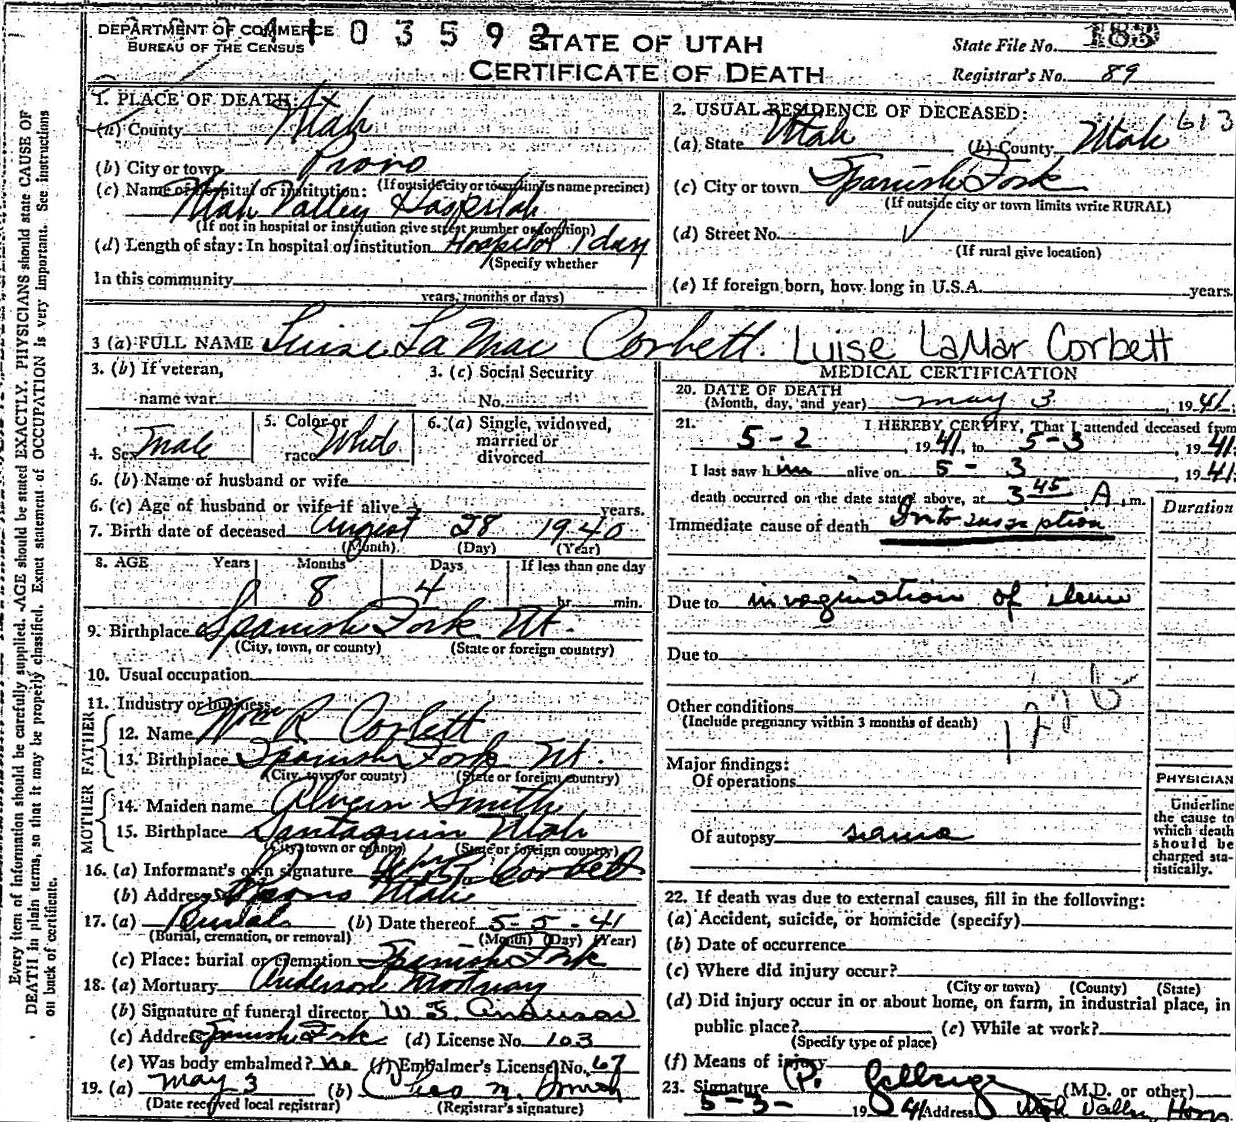 DEPARTMENT OF COMMERCE
BUREAU OF THE CENSUS
4 1 0 3 5 9 2
STATE OF UTAH
CERTIFICATE OF DEATH
State File No. 183
Registrar's No. 89
1. PLACE OF DEATH:
(a) County Utah
(b) City or town Provo
(If outside city or town limits name precinct)
(c) Name of hospital or institution:
Utah Valley Hospital
(If not in hospital or institution give street number or location)
(d) Length of stay: In hospital or institution Hospital 1 day
(Specify whether
In this community
years, months or days)
2. USUAL RESIDENCE OF DECEASED:
613
(a) State Utah (b) County Utah
(c) City or town Spanish Fork
(If outside city or town limits write RURAL)
(d) Street No.
(If rural give location)
(e) If foreign born, how long in U.S.A. years.
3 (a) FULL NAME Luise La Mar Corbett. Luise LaMar Corbett
3. (b) If veteran,
name war
3. (c) Social Security
No.
4. Sex Male
5. Color or
race White
6. (a) Single, widowed,
married or
divorced
6. (b) Name of husband or wife
6. (c) Age of husband or wife if alive years.
7. Birth date of deceased August 28 1940
(Month) (Day) (Year)
8. AGE Years Months Days If less than one day
8 4 hr. min.
9. Birthplace Spanish Fork Ut.
(City, town, or county) (State or foreign country)
10. Usual occupation
11. Industry or business
FATHER
12. Name Wm R Corbett
13. Birthplace Spanish Fork Ut.
(City, town or county) (State or foreign country)
MOTHER
14. Maiden name Smith
15. Birthplace Santaquin Utah
(City, town or county) (State or foreign country)
16. (a) Informant's own signature Corbett
(b) Address Provo Utah
17. (a) Burial (b) Date thereof 5-5-41
(Burial, cremation, or removal) (Month) (Day) (Year)
(c) Place: burial or cremation Spanish Fork
18. (a) Mortuary Anderson Mortuary
(b) Signature of funeral director W. Anderson
(c) Address Spanish Fork (d) License No. 103
(e) Was body embalmed? No (f) Embalmer's License No. 67
19. (a) May 3 (b)
(Date received local registrar) (Registrar's signature)
MEDICAL CERTIFICATION
20. DATE OF DEATH
(Month, day, and year) May 3, 1941.
21. I HEREBY CERTIFY, That I attended deceased from
5-2, 1941, to 5-3, 1941.
I last saw him alive on 5-3, 1941.
death occurred on the date stated above, at 3 45 A. m.
Duration
Immediate cause of death Intussusception
Due to invagination of ileum
Due to
Other conditions
(Include pregnancy within 3 months of death)
Major findings:
Of operations
Of autopsy same
PHYSICIAN
Underline
the cause to
which death
should be
charged sta-
tistically.
22. If death was due to external causes, fill in the following:
(a) Accident, suicide, or homicide (specify)
(b) Date of occurrence
(c) Where did injury occur?
(City or town) (County) (State)
(d) Did injury occur in or about home, on farm, in industrial place, in
public place? (e) While at work?
(Specify type of place)
(f) Means of injury
23. Signature (M.D. or other)
5-3- 1941 Address Utah Valley Hosp
Every item of information should be carefully supplied. AGE should be stated EXACTLY. PHYSICIANS should state CAUSE OF
DEATH in plain terms, so that it may be properly classified. Exact statement of OCCUPATION is very important. See instructions
on back of certificate.